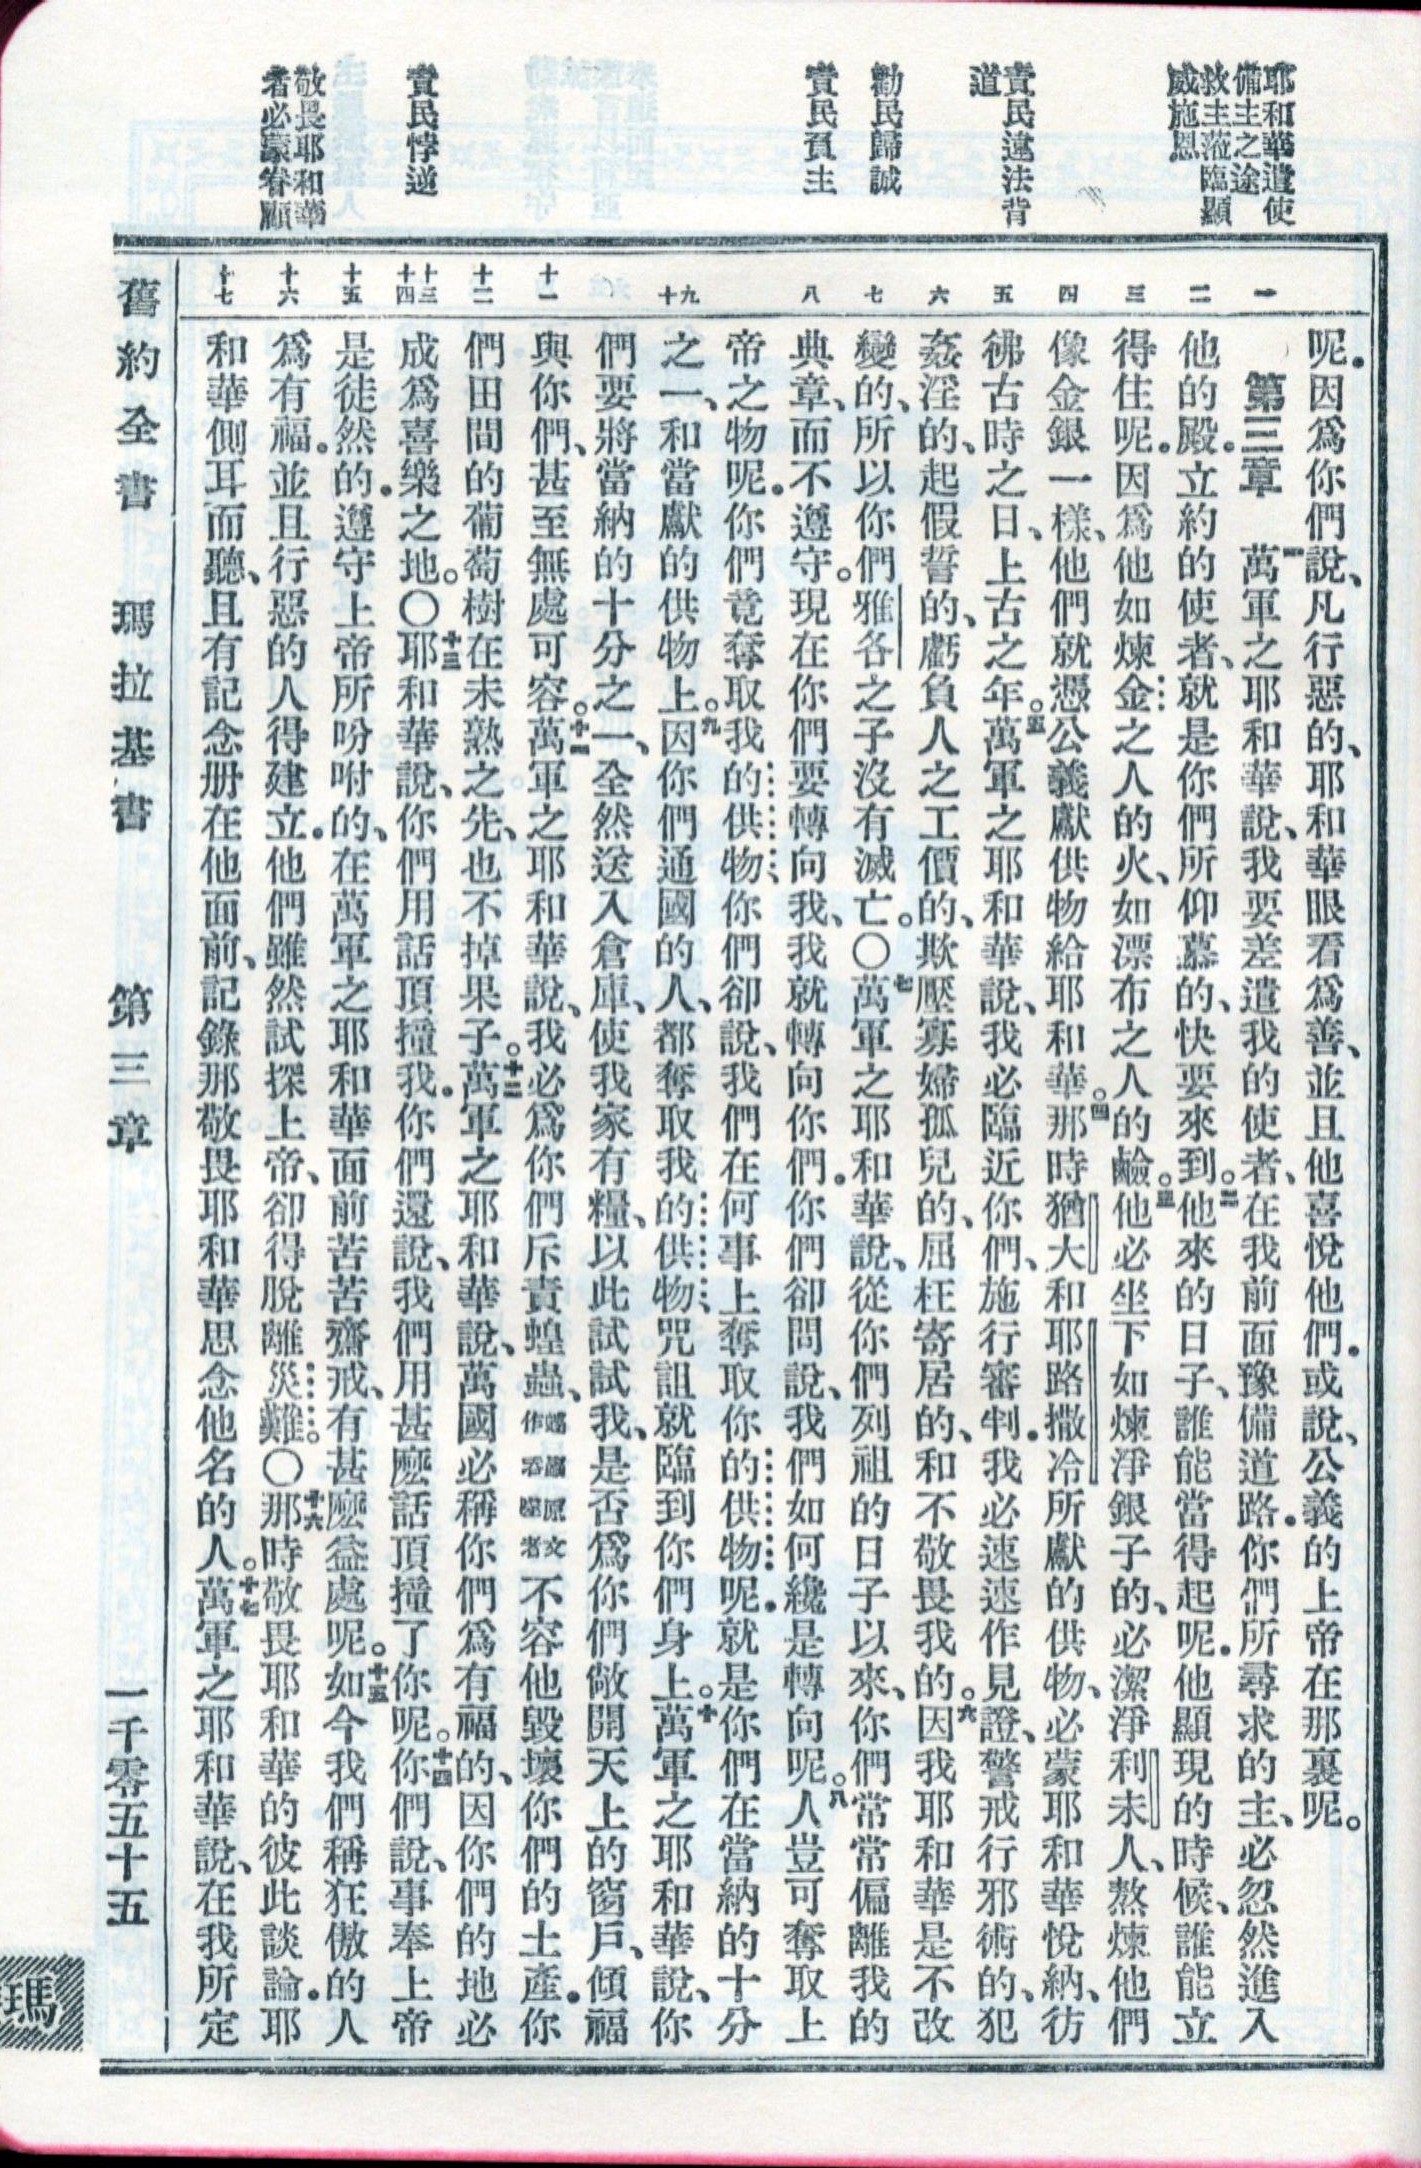 耶和華遣使
備主之途
救主蒞臨顯
威施恩
責民違法背
道
勸民歸誠
責民負主
責民悖逆
敬畏耶和華
者必蒙眷顧
一
二
三
四
五
六
七
八
九
十
十一
十二
十三
十四
十五
十六
十七
呢．因爲你們說、凡行惡的、耶和華眼看爲善、並且他喜悅他們．或說、公義的上帝在那裏呢。
第三章 一萬軍之耶和華說、我要差遣我的使者、在我前面豫備道路．你們所尋求的主、必忽然進入
他的殿．立約的使者、就是你們所仰慕的、快要來到。二他來的日子、誰能當得起呢．他顯現的時候、誰能立
得住呢．因爲他如煉金之人的火、如漂布之人的鹼。三他必坐下如煉淨銀子的、必潔淨利未人、熬煉他們
像金銀一樣、他們就憑公義獻供物給耶和華。四那時猶大和耶路撒冷所獻的供物、必蒙耶和華悅納、彷
彿古時之日、上古之年。五萬軍之耶和華說、我必臨近你們、施行審判．我必速速作見證、警戒行邪術的、犯
姦淫的、起假誓的、虧負人之工價的、欺壓寡婦孤兒的、屈枉寄居的、和不敬畏我的。六因我耶和華是不改
變的、所以你們雅各之子沒有滅亡。〇七萬軍之耶和華說、從你們列祖的日子以來、你們常常偏離我的
典章、而不遵守。現在你們要轉向我、我就轉向你們．你們卻問說、我們如何纔是轉向呢。八人豈可奪取上
帝之物呢．你們竟奪取我的供物、你們卻說、我們在何事上奪取你的供物呢．就是你們在當納的十分
之一、和當獻的供物上。九因你們通國的人、都奪取我的供物、咒詛就臨到你們身上。十萬軍之耶和華說、你
們要將當納的十分之一、全然送入倉庫、使我家有糧、以此試試我、是否爲你們敞開天上的窗戶、傾福
與你們、甚至無處可容。十一萬軍之耶和華說、我必爲你們斥責蝗蟲、蝗蟲原文作吞噬者不容他毀壞你們的土產．你
們田間的葡萄樹在未熟之先、也不掉果子。十二萬軍之耶和華說、萬國必稱你們爲有福的、因你們的地必
成爲喜樂之地。〇十三耶和華說、你們用話頂撞我．你們還說、我們用甚麼話頂撞了你呢。十四你們說、事奉上帝
是徒然的．遵守上帝所吩咐的、在萬軍之耶和華面前苦苦齋戒、有甚麼益處呢。十五如今我們稱狂傲的人
爲有福．並且行惡的人得建立．他們雖然試探上帝、卻得脫離災難。〇十六那時敬畏耶和華的彼此談論．耶
和華側耳而聽、且有記念册在他面前、記錄那敬畏耶和華思念他名的人。十七萬軍之耶和華說、在我所定
舊約全書 瑪拉基書 第三章 一千零五十五
瑪